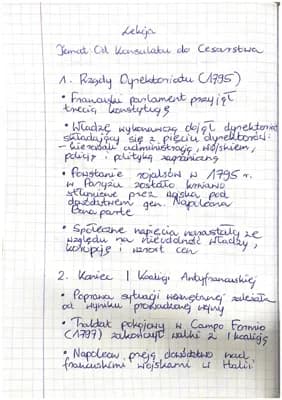 Lekcja
Temat: Od Konsulatu do Cesarstwa
1. Rządy Dyrektoriatu (1795)
• Francuski parlament przyjął
trzecią konstytucję
• Władzę wykonawczą objął dyrektoriat
składający się z pięciu dyrektorów:
- kierowali administracją, wojskiem,
policją i polityką zagraniczną
• Powstanie rojalistów w 1795 r.
w Paryżu zostało krwawo
stłumione przez wojska pod
dowództwem gen. Napoleona
Bonaparte
• Społeczne napięcia narastały ze
względu na nieudolność władzy,
korupcję i wzrost cen
2. Koniec I Koalicji Antyfrancuskiej
• Poprawa sytuacji wewnętrznej zależała
od wyniku prowadzonej wojny
• Traktat pokojowy w Campo Formio
(1797) zakończył walki z I koalicją
• Napoleon przejął dowództwo nad
francuskimi wojskami w Italii